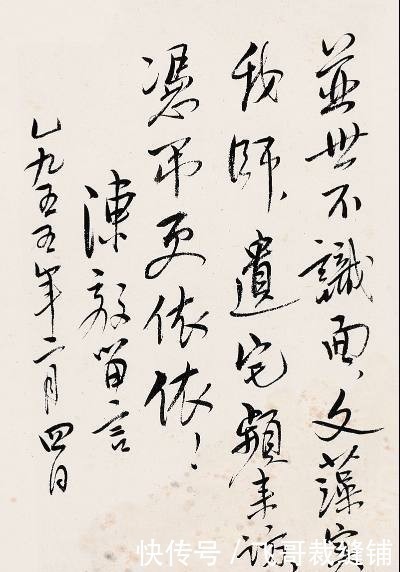 並世不識面，文藻實
我師，遺宅頻来訪
憑吊更依依！
陳毅留言
一九五五年二月四日
快传号／戊哥裁缝铺